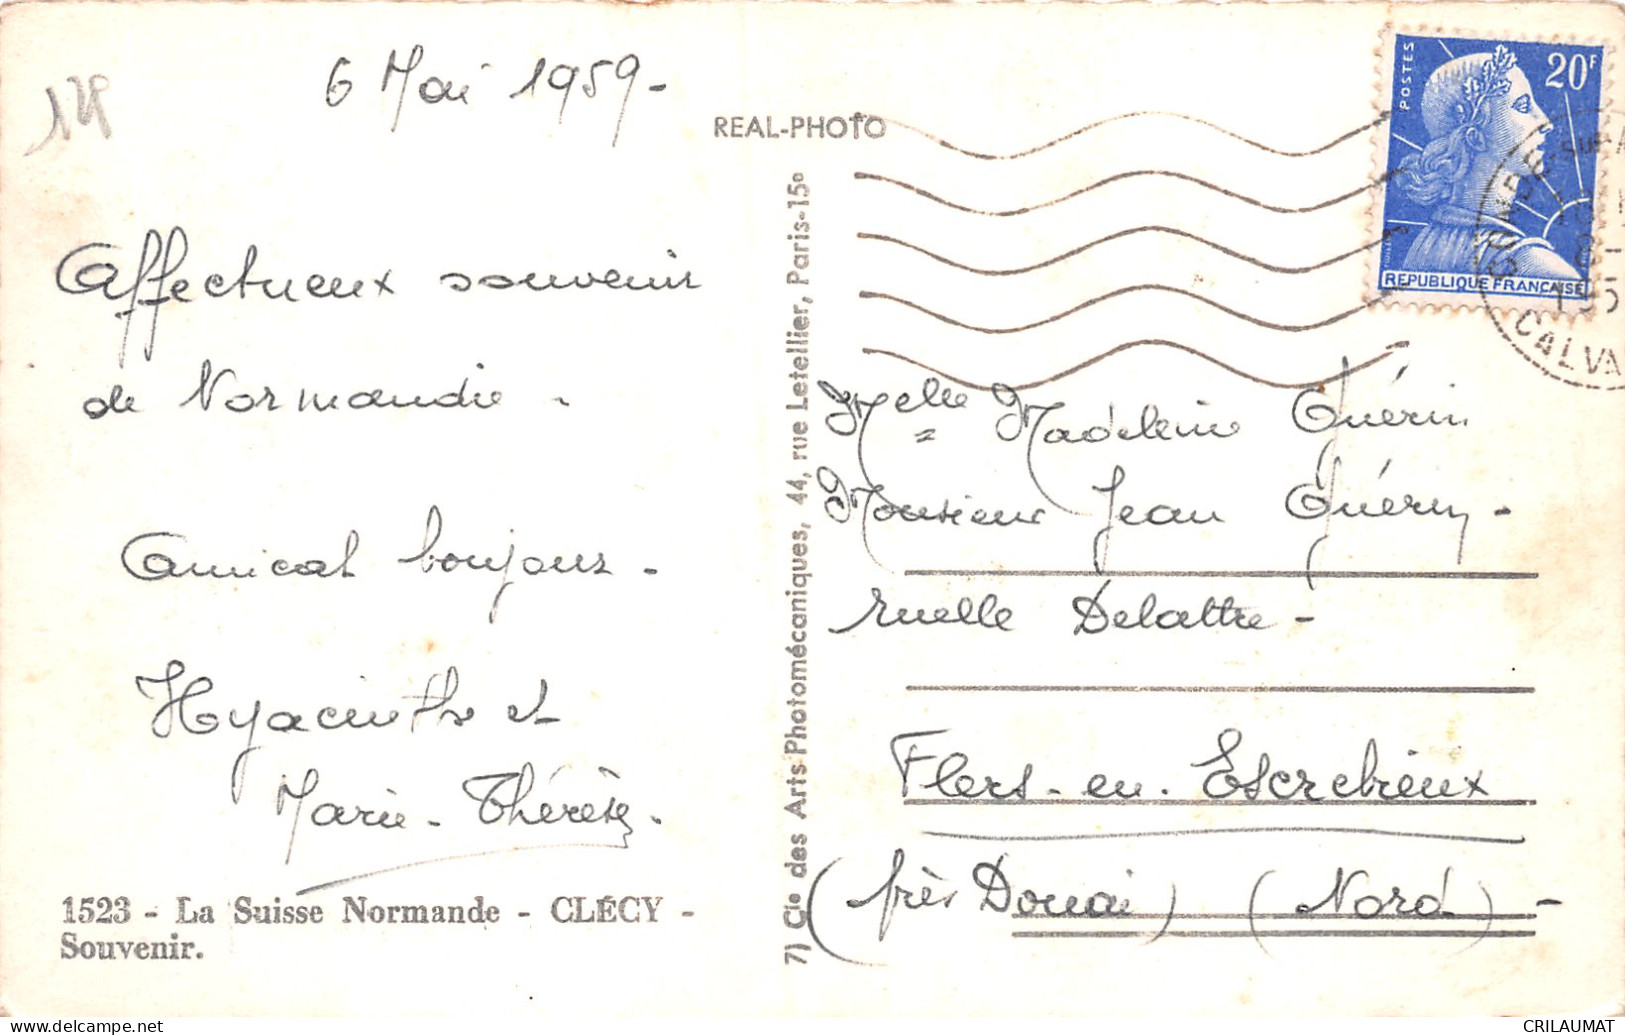 6 Mai 1959 -
REAL-PHOTO
Affectueux souvenir
de Normandie -
Amical bonjour -
Hyacinthe et
Marie-Thérèse -
1523 - La Suisse Normande - CLÉCY -
Souvenir.
7) Cie des Arts Photomécaniques, 44, rue Letellier, Paris-15º
POSTES
20F
REPUBLIQUE FRANÇAISE
CONDE-SUR-
CALVA
Melle Madeleine Guérin
Monsieur Jean Guérin -
ruelle Delattre -
Flers-en-Escrebieux
(près Douai) (Nord) -
CRILAUMAT